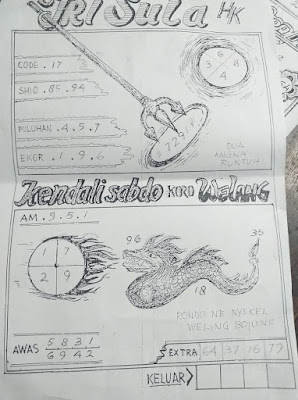 Tri Sula HK
CODE . 17
SHIO . 85.94
PULUHAN . 4.5.7
EKOR . 1.9.6
3 8
4
DUA
ANGKA
RUNTUH
Kendali sabdo KORO Welang
AM . 9.5.1
1 7
2 9
96
35
18
AWAS 5 8 3 1
6 9 4 2
EXTRA 64 37 16 77
KELUAR>